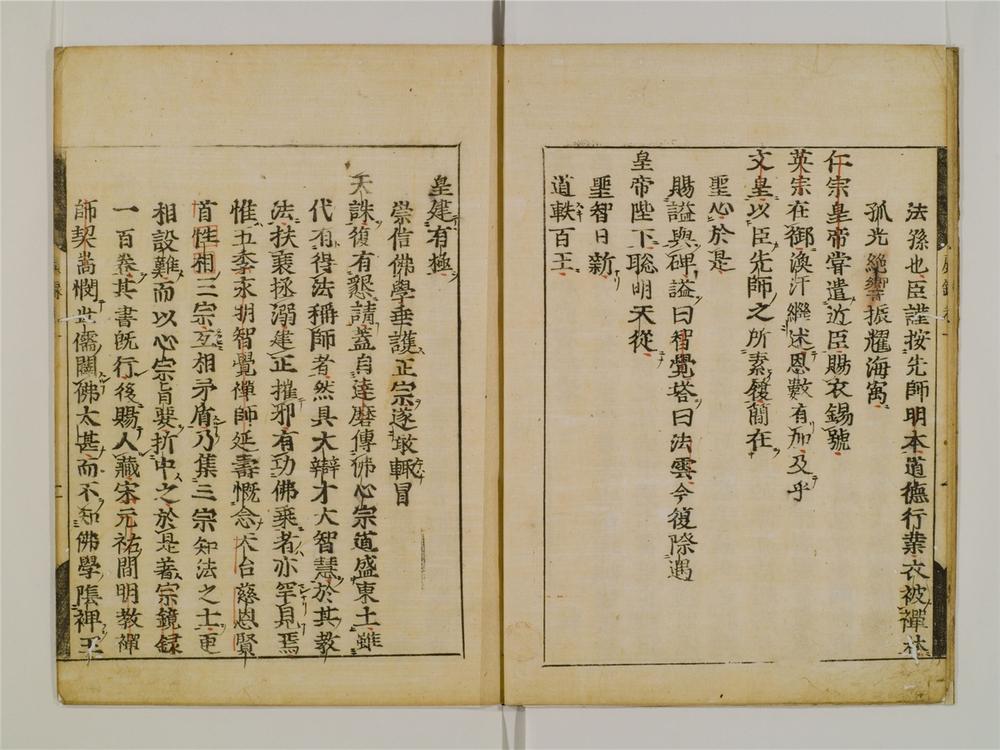 法孫也臣謹按先師明本道德行業衣被禪林
孤光絶響振耀海寓
仁宗皇帝甞遣近臣賜衣錫號
英宗在御渙汗繼述恩數有加及乎
文皇以臣先師之所素履簡在
聖心於是
賜謚與碑謚曰智覺塔曰法雲今復際遇
皇帝陛下聦明天從
聖智日新
道軼百王
皇建有極
崇信佛學垂護正宗遂敢輒冒
天誅復有懇請蓋自達磨傳佛心宗道盛東土雖
代有得法稱師者然具大辯才大智慧於其教
法扶衰拯溺建正摧邪有功佛乘者亦罕見焉
惟五季永明智覺禪師延壽慨念天台慈恩賢
首性相三宗互相矛盾乃集三宗知法之士更
相設難而以心宗旨要折中之於是著宗鏡録
一百卷其書既行後賜入藏宋元祐間明教禪
師契嵩憫世儒闢佛太甚而不知佛學隂裨王